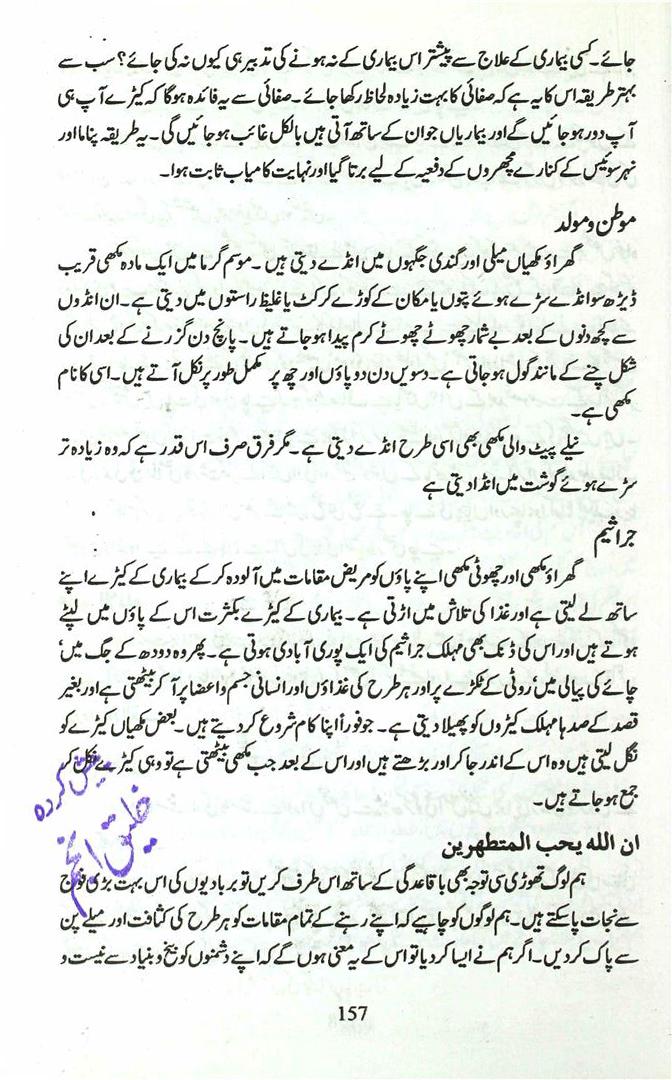 جائے۔ کسی بیماری کے علاج سے پیشتر اس بیماری کے نہ ہونے کی تدبیر ہی کیوں نہ کی جائے؟ سب سے
بہتر طریقہ اس کا یہ ہے کہ صفائی کا بہت زیادہ لحاظ رکھا جائے۔ صفائی سے یہ فائدہ ہوگا کہ کیڑے آپ ہی
آپ دور ہو جائیں گے اور بیماریاں جو ان کے ساتھ آتی ہیں بالکل غائب ہو جائیں گی۔ یہ طریقہ پناما اور
نہر سوئیس کے کنارے مچھروں کے دفعیہ کے لیے برتا گیا اور نہایت کامیاب ثابت ہوا۔
موطن و مولد
گھراؤ مکھیاں میلی اور گندی جگہوں میں انڈے دیتی ہیں۔ موسم گرما میں ایک مادہ مکھی قریب
ڈیڑھ سو انڈے سڑے ہوئے پتوں یا مکان کے کوڑے کرکٹ یا غلیظ راستوں میں دیتی ہے۔ ان انڈوں
سے کچھ دنوں کے بعد بے شمار چھوٹے چھوٹے کرم پیدا ہو جاتے ہیں۔ پانچ دن گزرنے کے بعد ان کی
شکل چنے کے مانند گول ہو جاتی ہے۔ دسویں دن دو پاؤں اور چھ پر مکمل طور پر نکل آتے ہیں۔ اسی کا نام
مکھی ہے۔
نیلے پیٹ والی مکھی بھی اسی طرح انڈے دیتی ہے۔ مگر فرق صرف اس قدر ہے کہ وہ زیادہ تر
سڑے ہوئے گوشت میں انڈا دیتی ہے
جراثیم
گھراؤ مکھی اور چھوٹی مکھی اپنے پاؤں کو مریض مقامات میں آلودہ کر کے بیماری کے کیڑے اپنے
ساتھ لے لیتی ہے اور غذا کی تلاش میں اڑتی ہے۔ بیماری کے کیڑے بکثرت اس کے پاؤں میں لپٹے
ہوتے ہیں اور اس کی ڈنک بھی مہلک جراثیم کی ایک پوری آبادی ہوتی ہے۔ پھر وہ دودھ کے جگ میں'
چائے کی پیالی میں' روٹی کے ٹکڑے پر اور ہر طرح کی غذاؤں اور انسانی جسم و اعضا پر آ کر بیٹھتی ہے اور بغیر
قصد کے صدہا مہلک کیڑوں کو پھیلا دیتی ہے۔ جو فوراً اپنا کام شروع کر دیتے ہیں۔ بعض مکھیاں کیڑے کو
نگل لیتی ہیں وہ اس کے اندر جا کر اور بڑھتے ہیں اور اس کے بعد جب مکھی بیٹھتی ہے تو وہی کیڑے نکل کر
جمع ہو جاتے ہیں۔
ان الله يحب المتطهرين
ہم لوگ تھوڑی سی توجہ بھی باقاعدگی کے ساتھ اس طرف کریں تو بربادیوں کی اس بہت بڑی فوج
سے نجات پا سکتے ہیں۔ ہم لوگوں کو چاہیے کہ اپنے رہنے کے تمام مقامات کو ہر طرح کی کثافت اور میلے پن
سے پاک کر دیں۔ اگر ہم نے ایسا کر دیا تو اس کے یہ معنی ہوں گے کہ اپنے دشمنوں کو بیخ و بنیاد سے نیست و
پیش کردہ
خلیق انجم
157